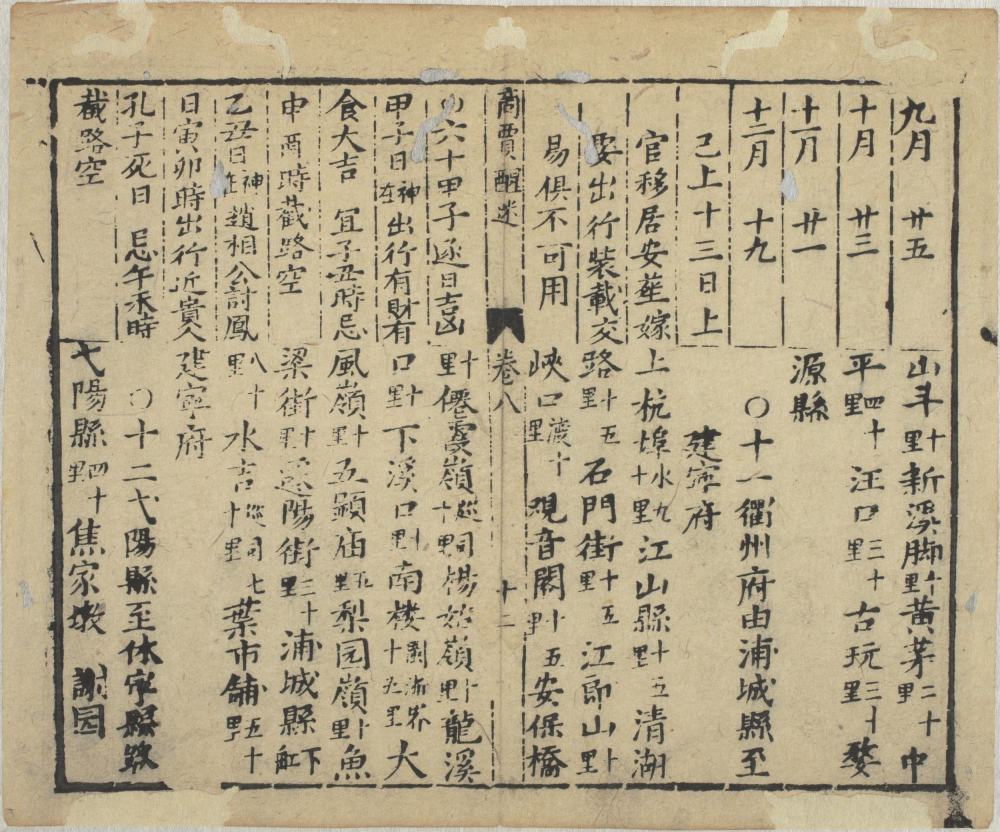 九月 廿五
十月 廿三
十一月 廿一
十二月 十九
己上十三日上
官移居安葬嫁
娶出行裝載交
易俱不可用
商賈醒迷 卷八 十二
六十甲子逐日吉凶
甲子日神在出行有財有
食大吉 宜子丑時忌
申酉時截路空
乙丑日神在趙相公討鳳
日寅卯時出行近貴人
孔子死日 忌午未時
截路空
山斗十里新溪脚十里黃茅二十里中
平四十里汪口三十里古玩三十里婺
源縣
○十一衢州府由浦城縣至
建寧府
上杭埠水九十里江山縣十五里清湖
路十五里石門街十五里江郎山十里
峽口渡十里觀音閣十五里安保橋
十里僊霞嶺巡司十里楊姑嶺十里龍溪
口十里下溪口十里南楼閩浙界十九里大
風嶺十里五顯庙五里梨园嶺十里魚
梁街十里遂陽街三十里浦城縣下舡
八十里水吉巡司七十里葉市舖五十里
建寧府
○十二弋陽縣至休宁縣路
弋陽縣四十里焦家墩 謝园